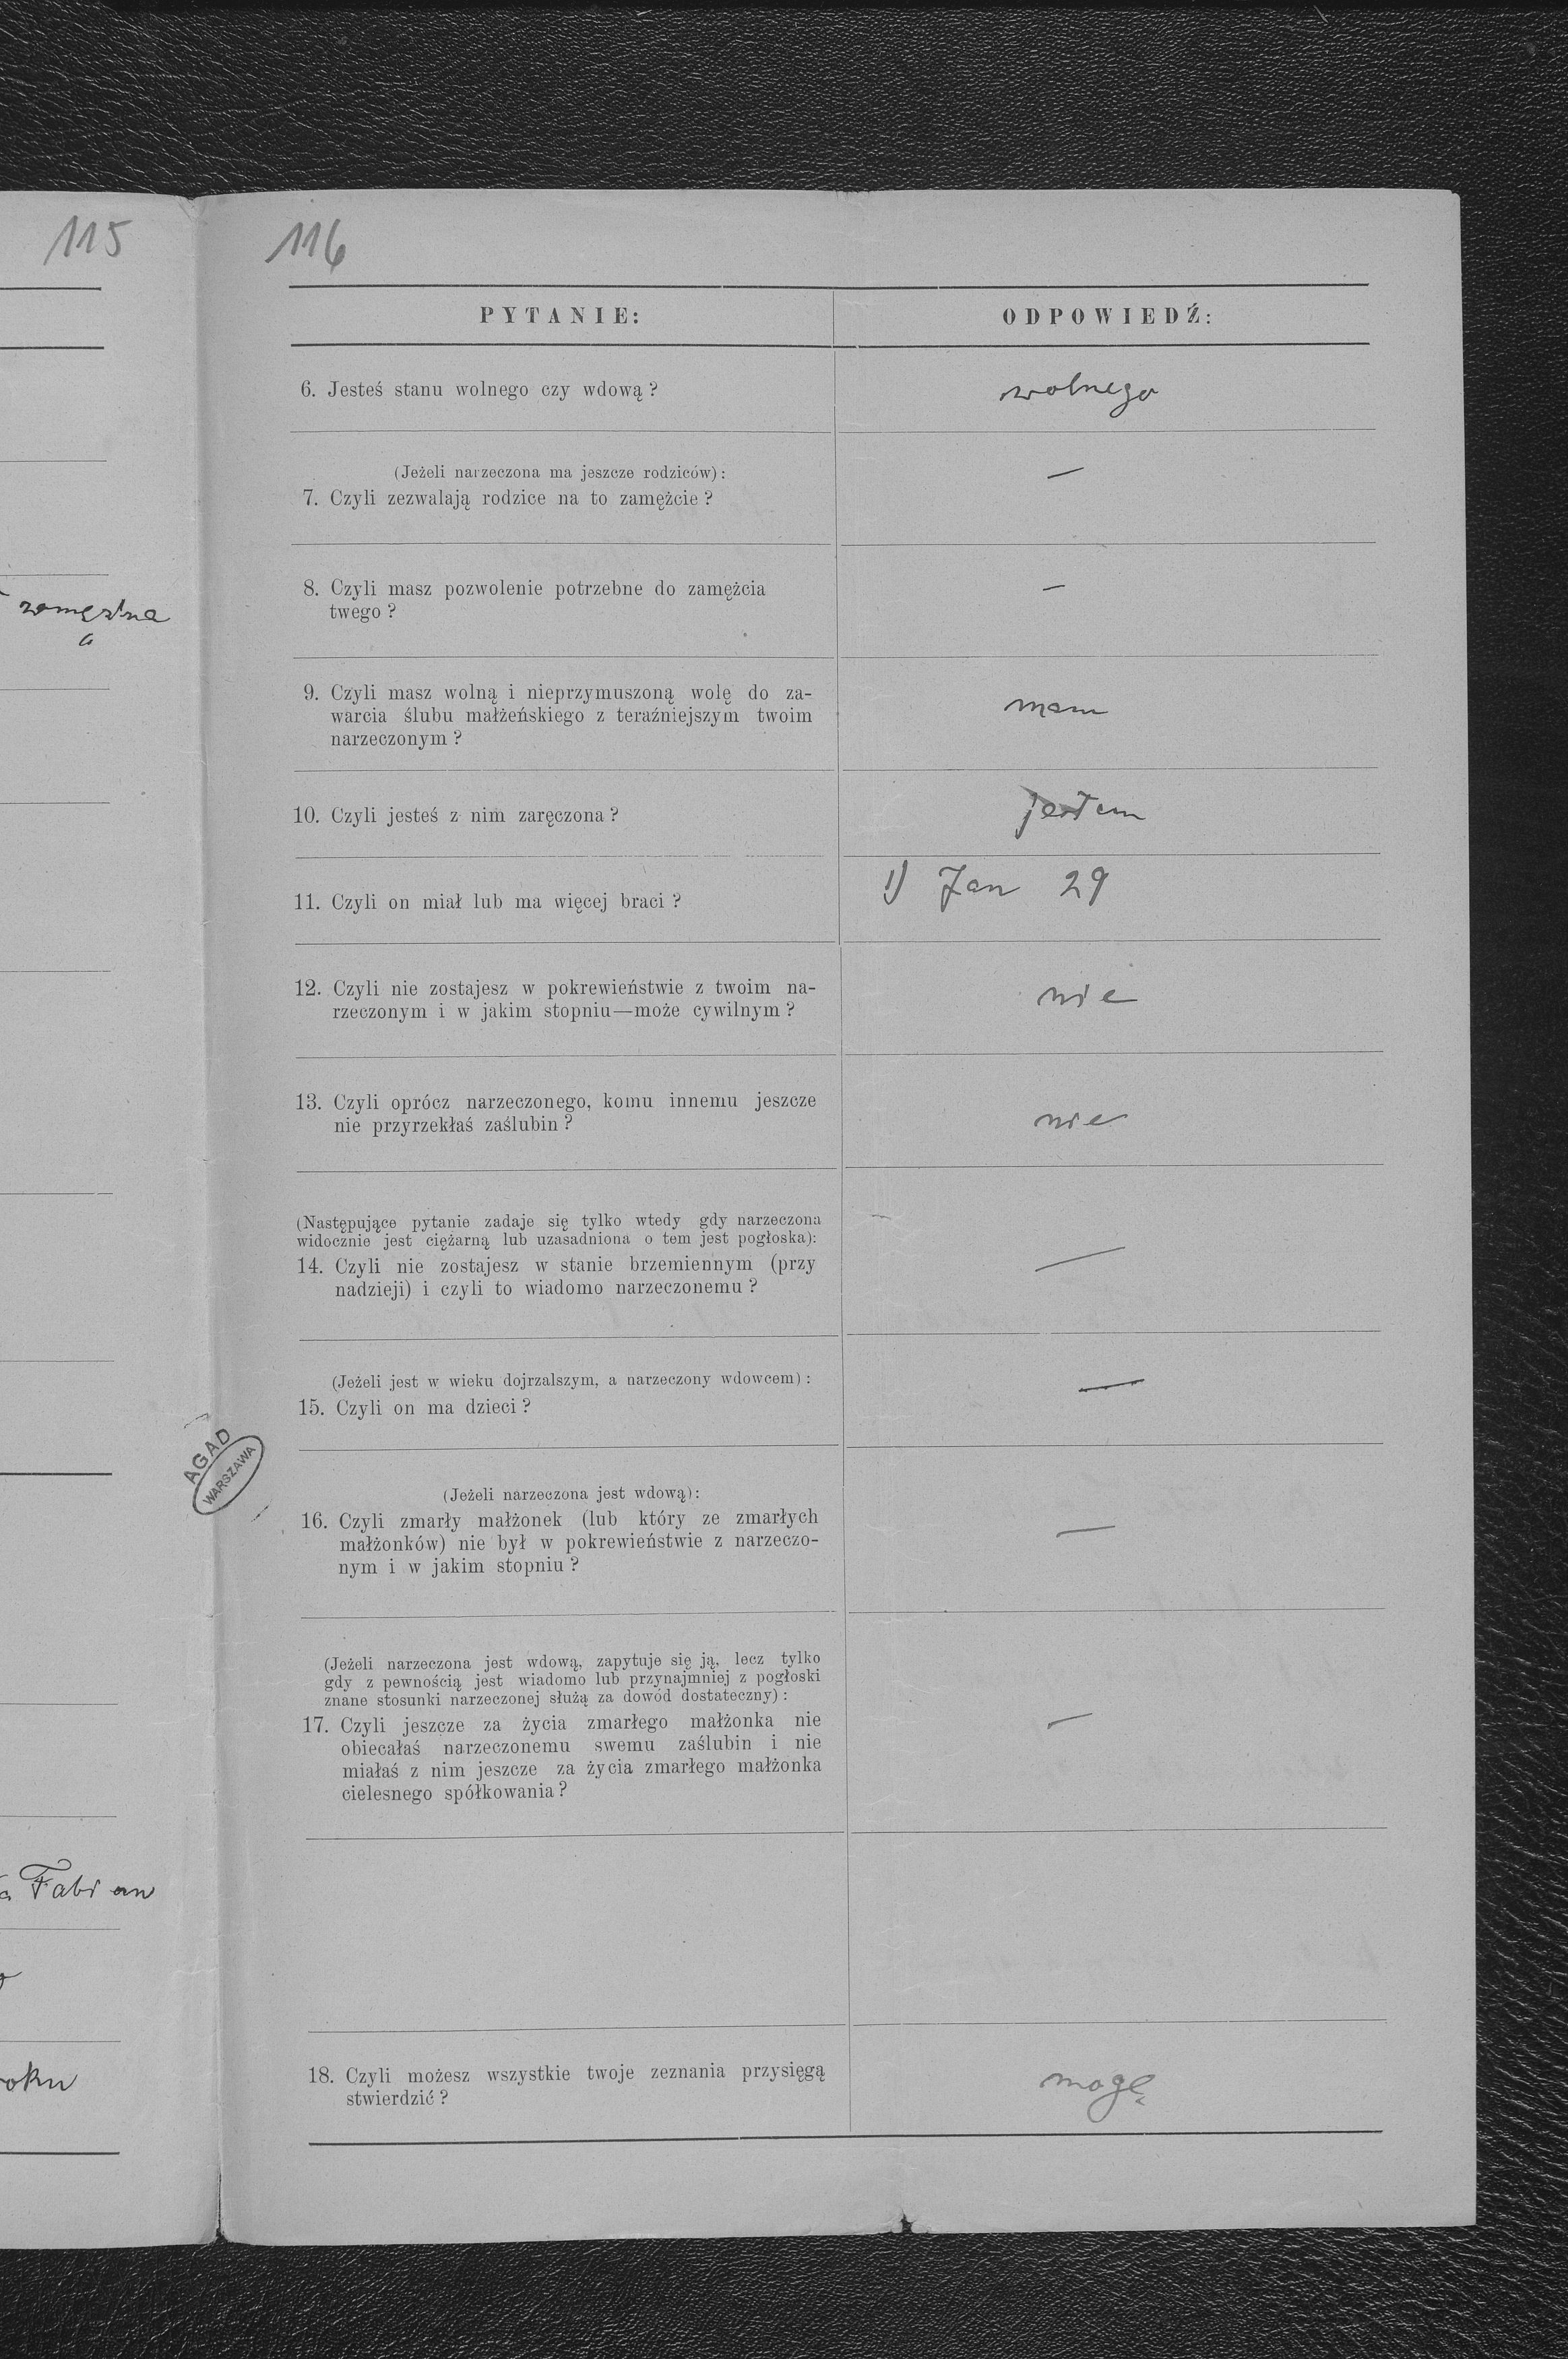 115
zamężna
Fabian
roku
116
PYTANIE:
ODPOWIEDŹ:
6. Jesteś stanu wolnego czy wdową?
wolnego
(Jeżeli narzeczona ma jeszcze rodziców):
7. Czyli zezwalają rodzice na to zamężcie?
—
8. Czyli masz pozwolenie potrzebne do zamężcia
twego?
—
9. Czyli masz wolną i nieprzymuszoną wolę do za-
warcia ślubu małżeńskiego z teraźniejszym twoim
narzeczonym?
mam
10. Czyli jesteś z nim zaręczona?
jestem
11. Czyli on miał lub ma więcej braci?
1) Jan 29
12. Czyli nie zostajesz w pokrewieństwie z twoim na-
rzeczonym i w jakim stopniu—może cywilnym?
nie
13. Czyli oprócz narzeczonego, komu innemu jeszcze
nie przyrzekłaś zaślubin?
nie
(Następujące pytanie zadaje się tylko wtedy gdy narzeczona
widocznie jest ciężarną lub uzasadniona o tem jest pogłoska):
14. Czyli nie zostajesz w stanie brzemiennym (przy
nadzieji) i czyli to wiadomo narzeczonemu?
—
(Jeżeli jest w wieku dojrzalszym, a narzeczony wdowcem):
15. Czyli on ma dzieci?
—
AGAD
WARSZAWA
(Jeżeli narzeczona jest wdową):
16. Czyli zmarły małżonek (lub który ze zmarłych
małżonków) nie był w pokrewieństwie z narzeczo-
nym i w jakim stopniu?
—
(Jeżeli narzeczona jest wdową, zapytuje się ją, lecz tylko
gdy z pewnością jest wiadomo lub przynajmniej z pogłoski
znane stosunki narzeczonej służą za dowód dostateczny):
17. Czyli jeszcze za życia zmarłego małżonka nie
obiecałaś narzeczonemu swemu zaślubin i nie
miałaś z nim jeszcze za życia zmarłego małżonka
cielesnego spółkowania?
—
18. Czyli możesz wszystkie twoje zeznania przysięgą
stwierdzić?
mogę